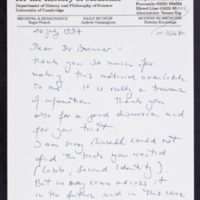 Department of History and Philosophy of Science
University of Cambridge
MEDIEVAL & RENAISSANCE
Roger French
EARLY MODERN
Andrew Cunningham
10 July 1997
Dear Dr Brenner
Thank you so much for
making this material available
to me. It is really a treasure
of information. Thank you
also for a good discussion and
for your trust.
I am sorry Russell could not
find the book you wanted
(Cobb, Second Identity)
But he may come across it
in the future and in this case